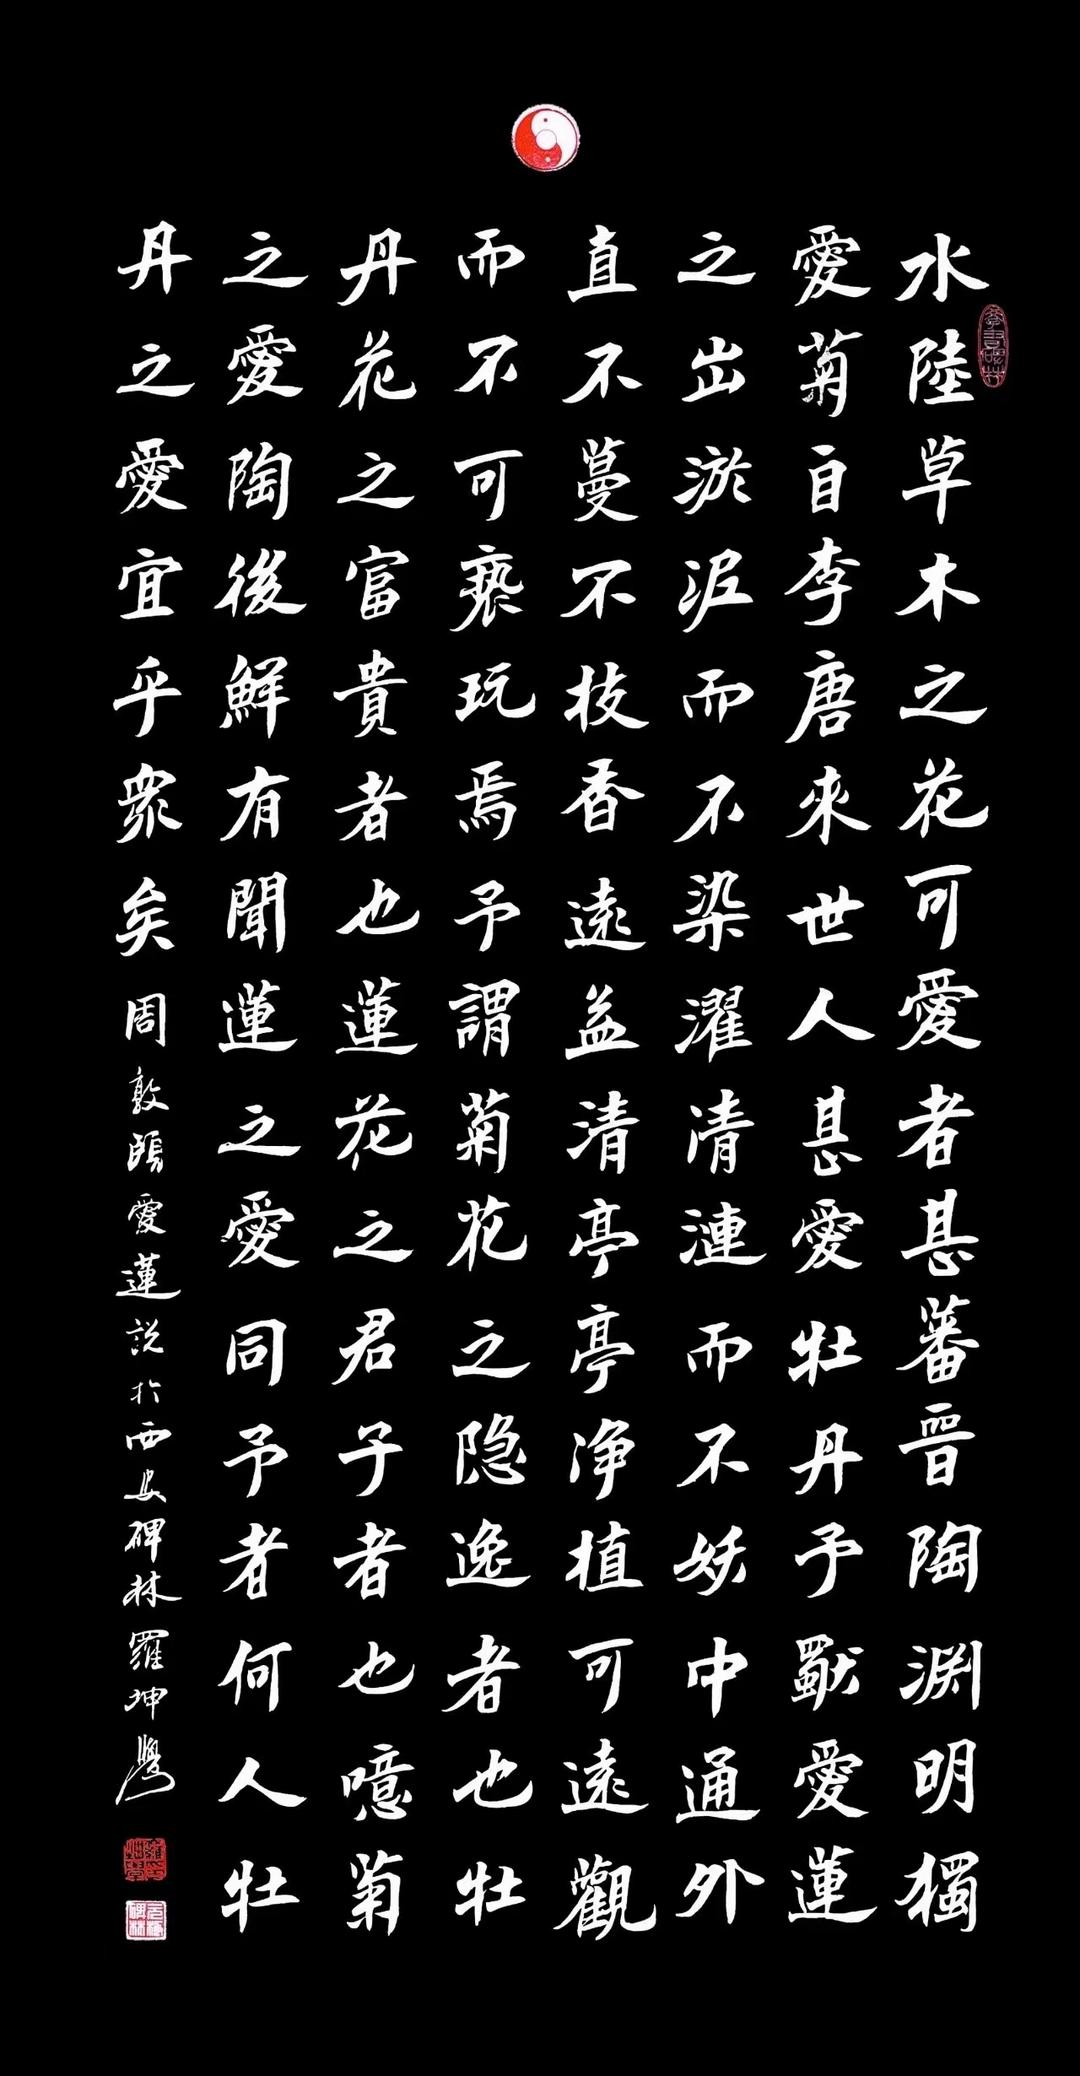 水陸草木之花可愛者甚蕃晉陶渊明獨
愛菊自李唐來世人甚愛牡丹予獨愛蓮
之出淤泥而不染濯清漣而不妖中通外
直不蔓不枝香遠益清亭亭净植可遠觀
而不可褻玩焉予謂菊花之隐逸者也牡
丹花之富貴者也蓮花之君子者也噫菊
之愛陶後鮮有聞蓮之愛同予者何人牡
丹之愛宜乎眾矣周敦頤愛蓮説於西安碑林羅坤學